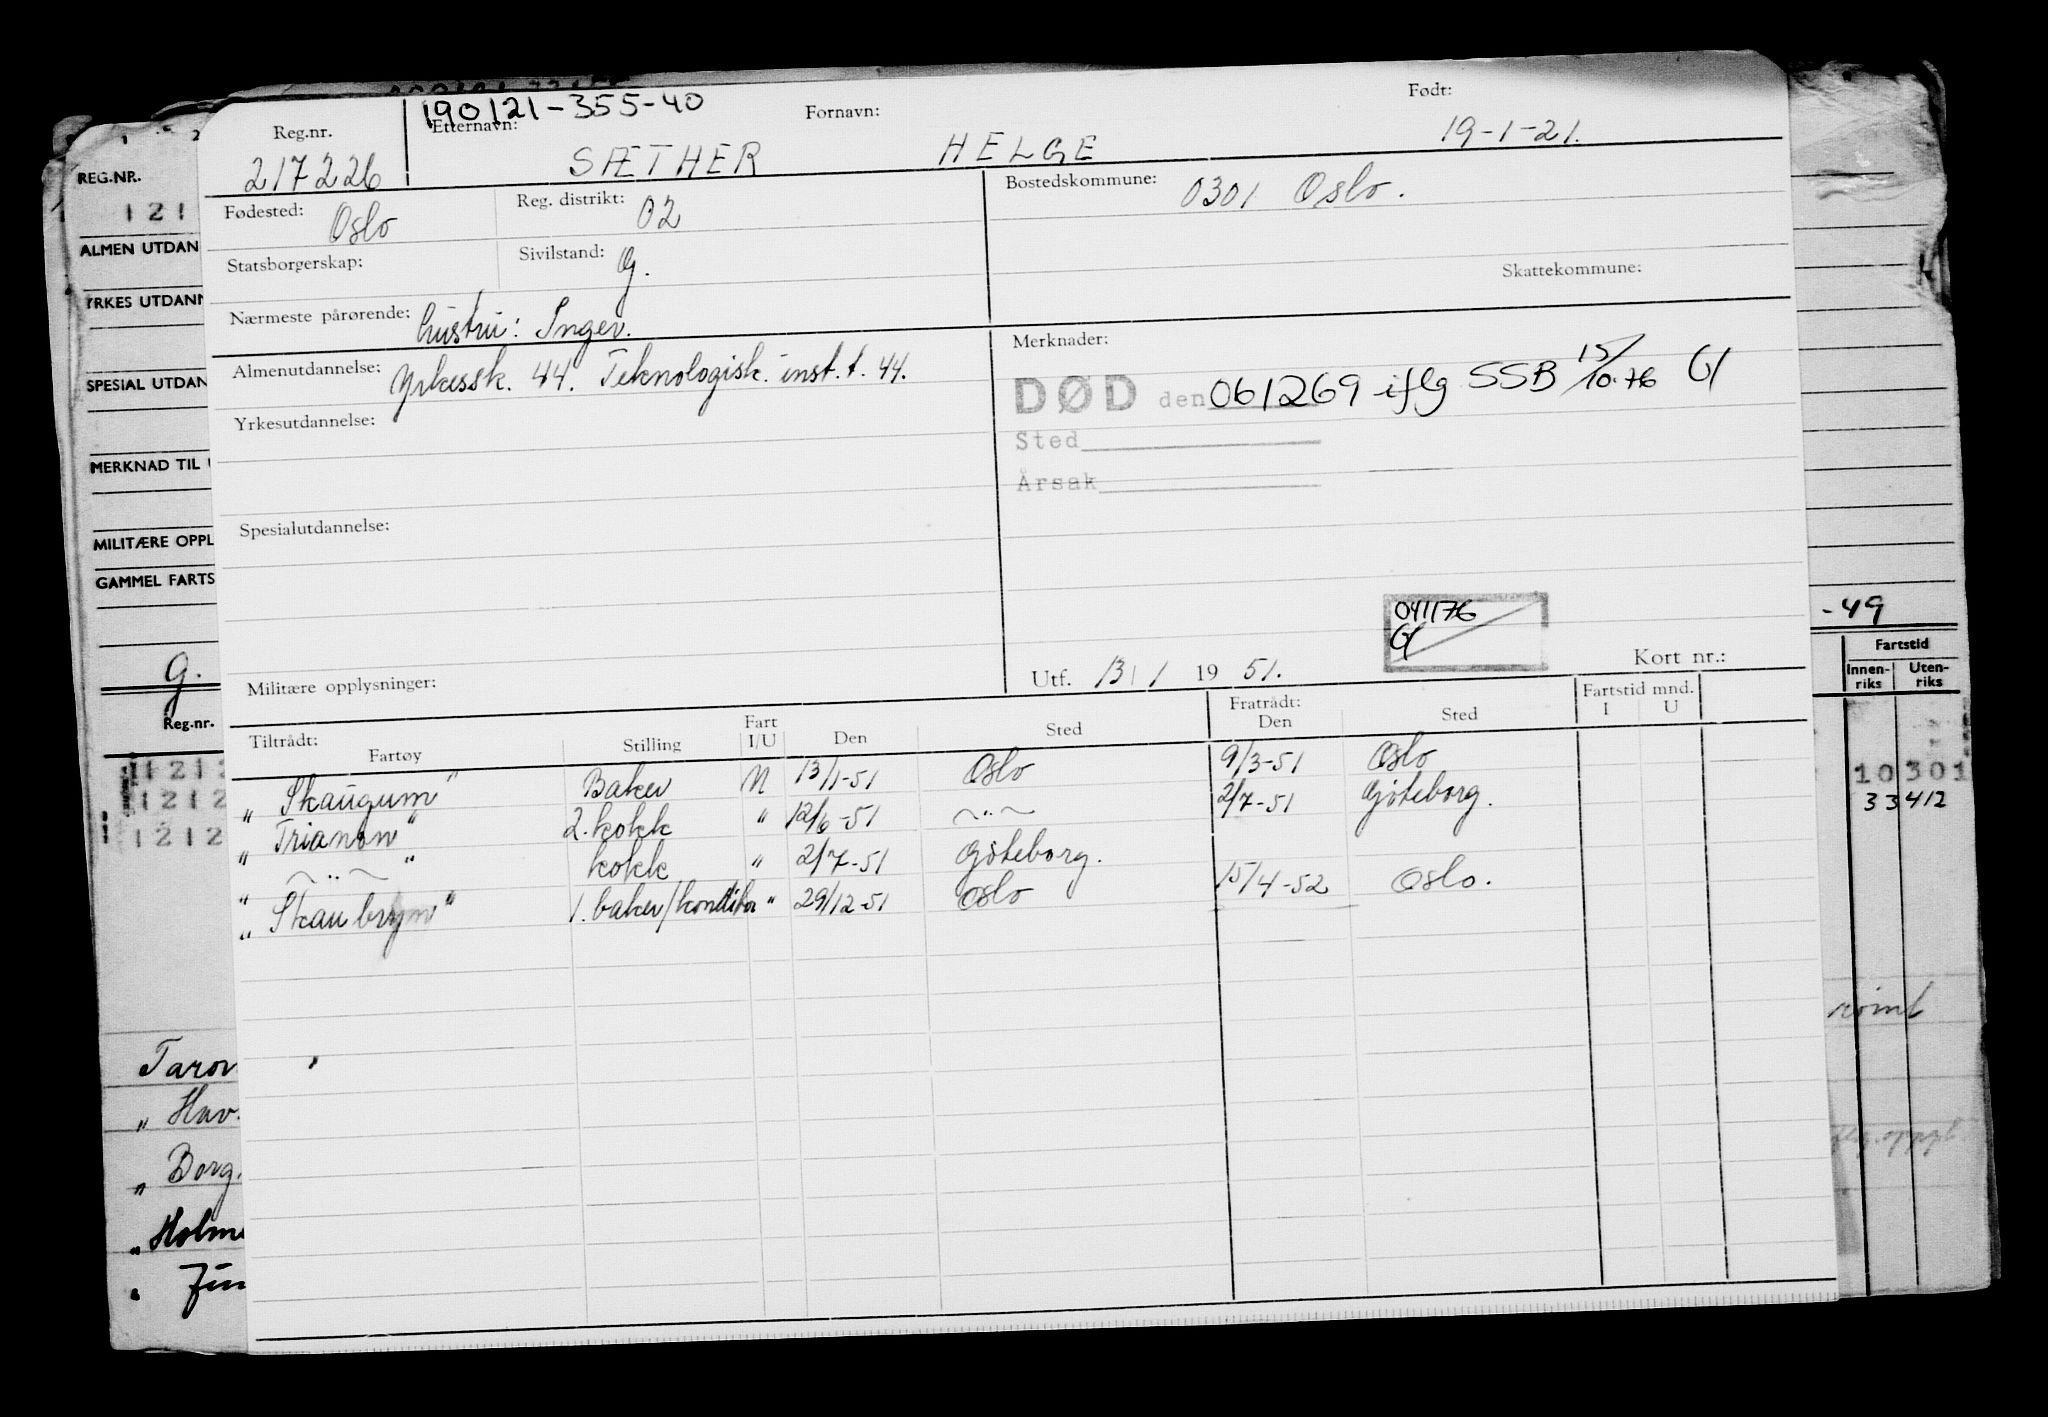 190121-355-40
Reg.nr. Etternavn: Fornavn: Født:
217226 SÆTHER HELGE 19-1-21.
Fødested: Oslo Reg. distrikt: 02 Bostedskommune: 0301 Oslo.
Statsborgerskap: Sivilstand: G. Skattekommune:
Nærmeste pårørende: hustru: Inger.
Almenutdannelse: Yrkessk. 44. Teknologisk. inst. t. 44. Merknader:
DØD den 061269 iflg SSB 15/10.76 G
Yrkesutdannelse:
Sted
Årsak
Spesialutdannelse:
041176
G
Militære opplysninger: Utf. 13/1 19 51. Kort nr.:
Tiltrådt: Fratrådt: Fartstid mnd.
Fartøy Stilling Fart I/U Den Sted Den Sted I U
" Skaugum " Baker N 13/1-51 Oslo 9/3-51 Oslo
" Trianon " 2. kokk " 12/6-51 ~"~ 2/7-51 Göteborg.
" ~"~ " kokk " 2/7-51 Göteborg.
" Skaubryn " 1. baker/konditor " 29/12-51 Oslo 15/4-52 Oslo.
1 2
REG.NR.
121
ALMEN UTDAN
YRKES UTDANN
SPESIAL UTDAN
MERKNAD TIL
MILITÆRE OPPL
GAMMEL FARTS
G.
Reg.nr.
11212
1212
1212
Taron
" Hav.
" Borg.
" Holm
-49
Fartstid
Innen-riks Uten-riks
10301
33412